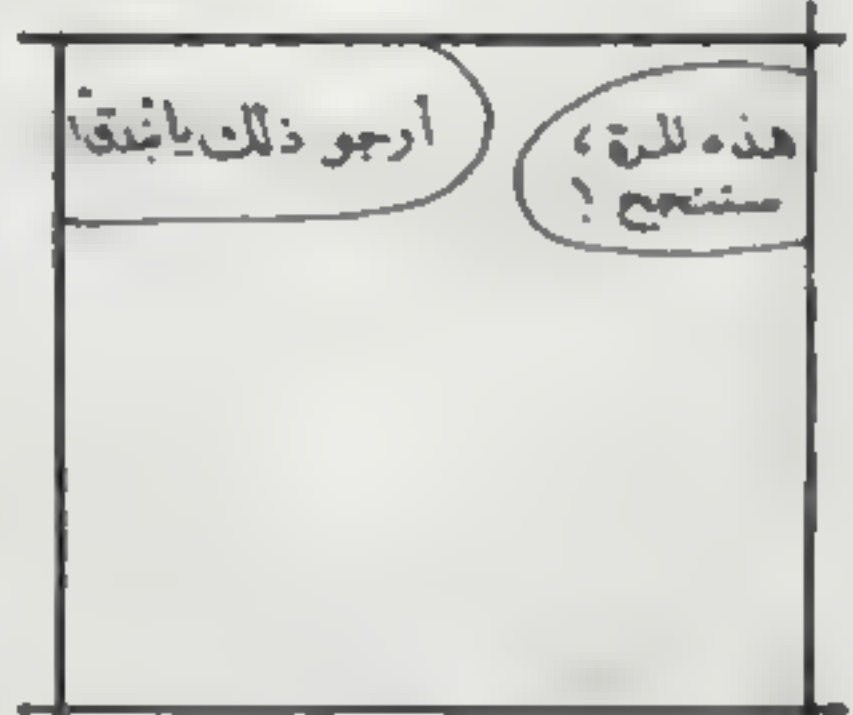 هذه المرة،
سننجح !
أرجو ذلك يا